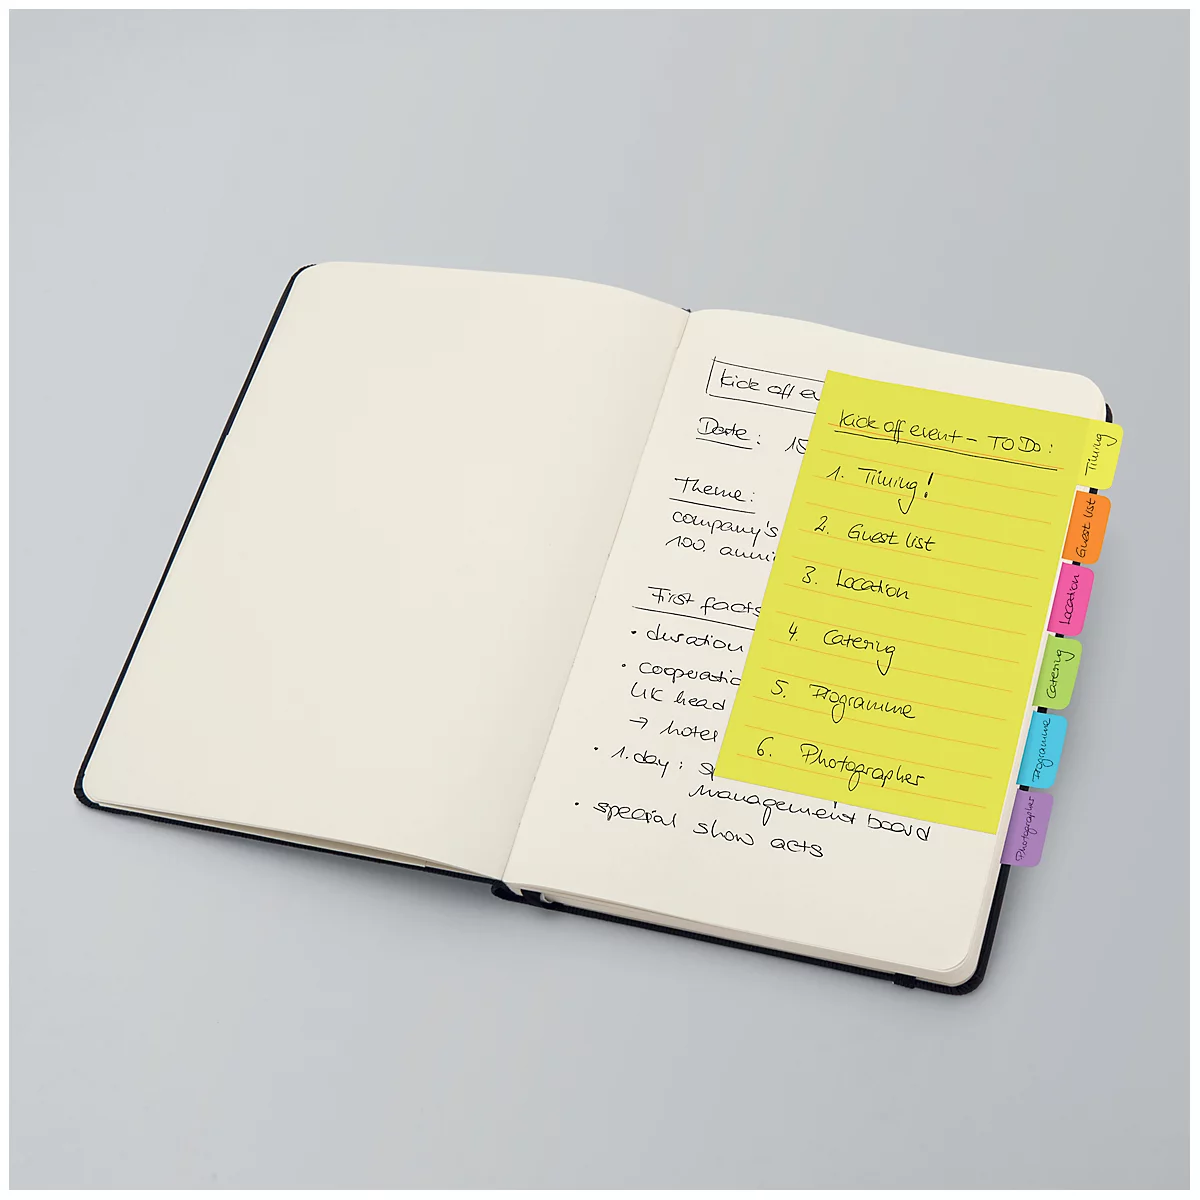 Kick off ev
Date: 15
Theme:
company's
100. anni
First facts
• duration
• cooperatic
UK head
→ hotel
• 1. day: sp
management board
• special show acts
Kick off event – TO Do:
1. Timing!
2. Guest list
3. Location
4. Catering
5. Programme
6. Photographer
Timing
Guest list
Location
Catering
Programme
Photographer